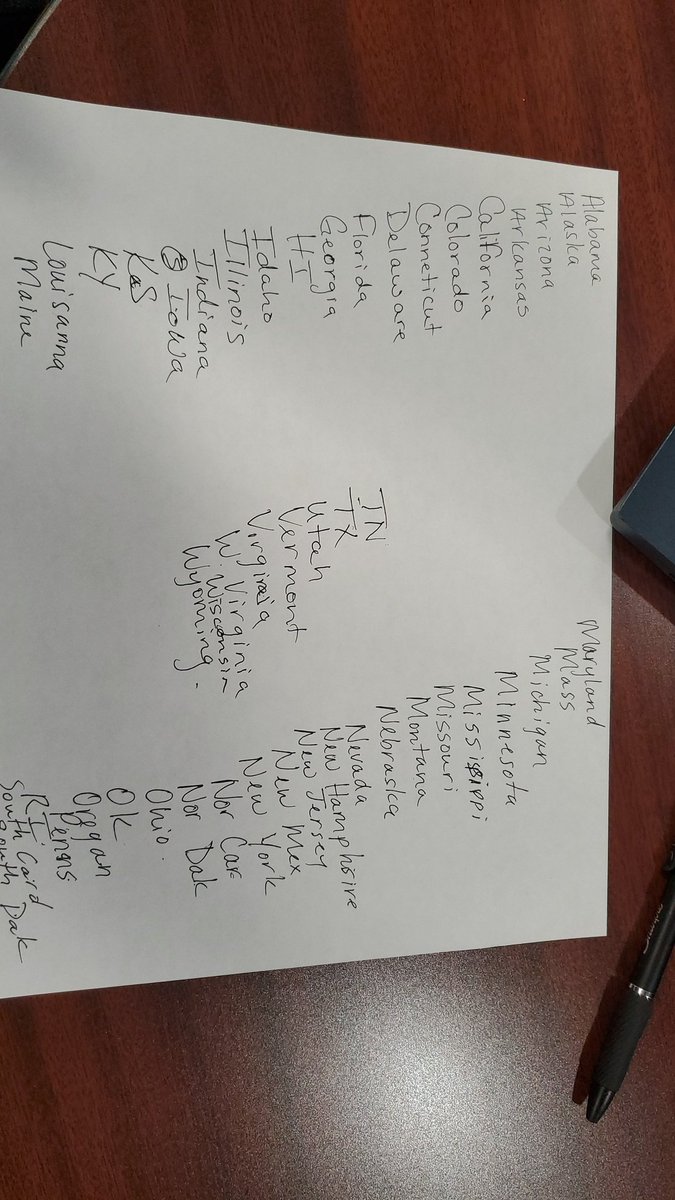 Alabama
Alaska
Arizona
Arkansas
California
Colorado
Conneticut
Delaware
Florida
Georgia
HI
Idaho
Illinois
Indiana
Iowa
KS
KY
Louisanna
Maine
TN
TX
Utah
Vermont
Virginia
W Virginia
Wisconsin
Wyoming.
Maryland
Mass
Michigan
Minnesota
Missisippi
Missouri
Montana
Nebraska
Nevada
New Hamphsire
New Jersey
New Mex
New York
Nor Car
Nor Dak
Ohio.
OK
Oregan
Penns
RI
South Card
South Dak